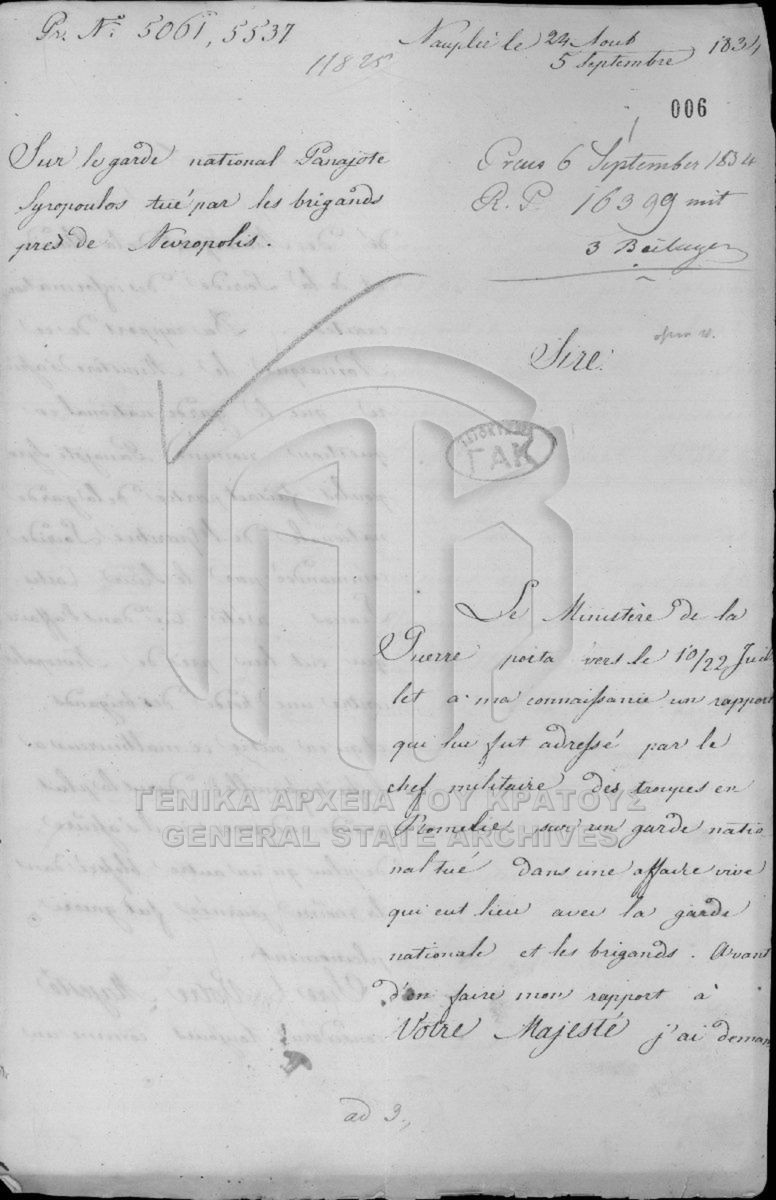 Pr. Nº 5061, 5537
11825
Nauplie le 24 Aout 1834
5 Septembre
006
Sur le garde national Panajote
Syropoulos tué par les brigands
pres de Nevropolis.
Praes 6 September 1834
R. P. 16399 mit
3 Beilagen
Sire!
ΓΑΚ
Le Ministère de la
Guerre porta vers le 10/22 Juil
let à ma connaissance un rapport
qui lui fut adressé par le
chef militaire des troupes en
Romelie sur un garde natio
nal tué dans une affaire vive
qui eut lieu avec la garde
nationale et les brigands. Avant
d'en faire mon rapport à
Votre Majesté j'ai deman
ad 3,
ΓΕΝΙΚΑ ΑΡΧΕΙΑ ΤΟΥ ΚΡΑΤΟΥΣ
GENERAL STATE ARCHIVES